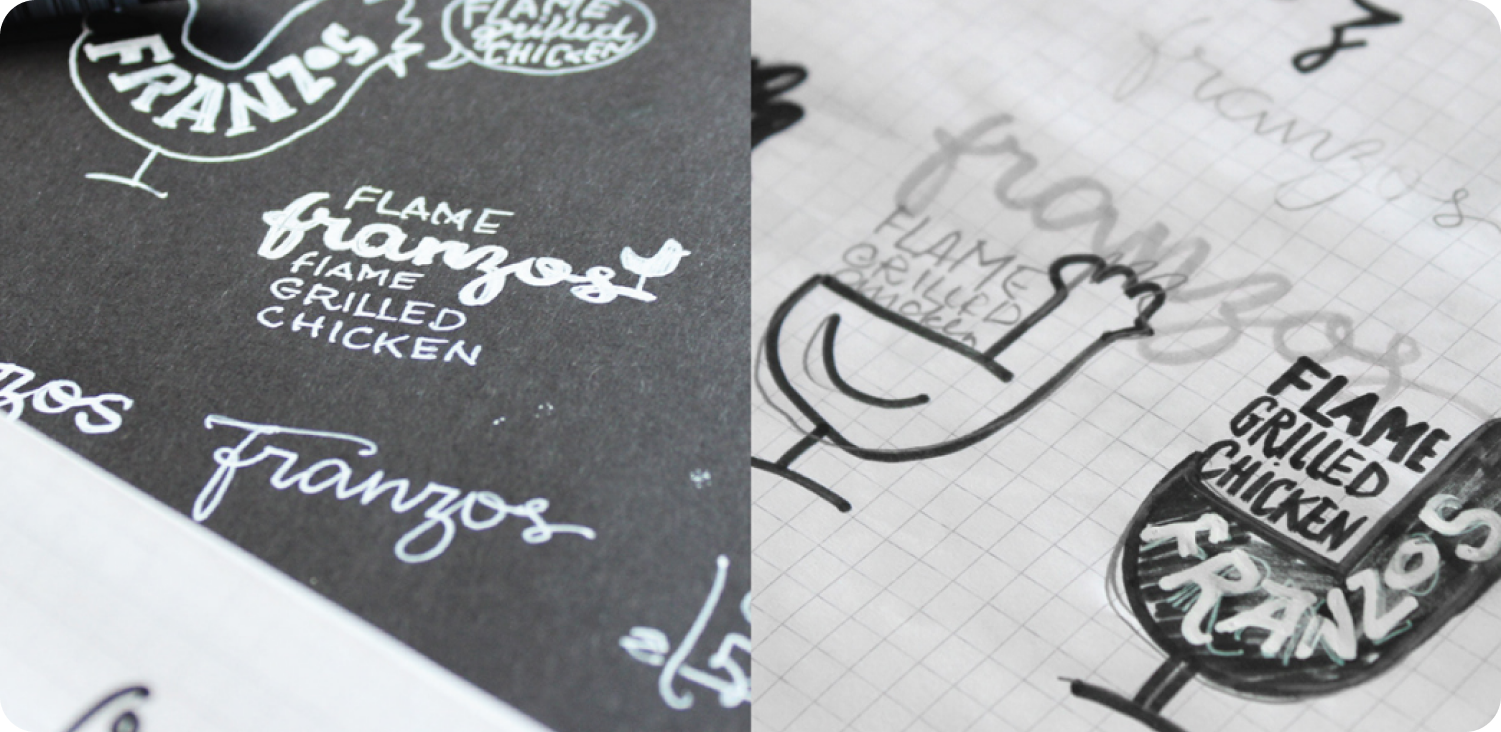 FLAME
grilled
CHICKEN
FRANZOS
FLAME
franzos
flAME
GRILLED
CHICKEN
zos
Franzos
franzos
franzos
FLAME
GRILLED
chicken
FLAME
GRILLED
CHICKEN
FRANZOS